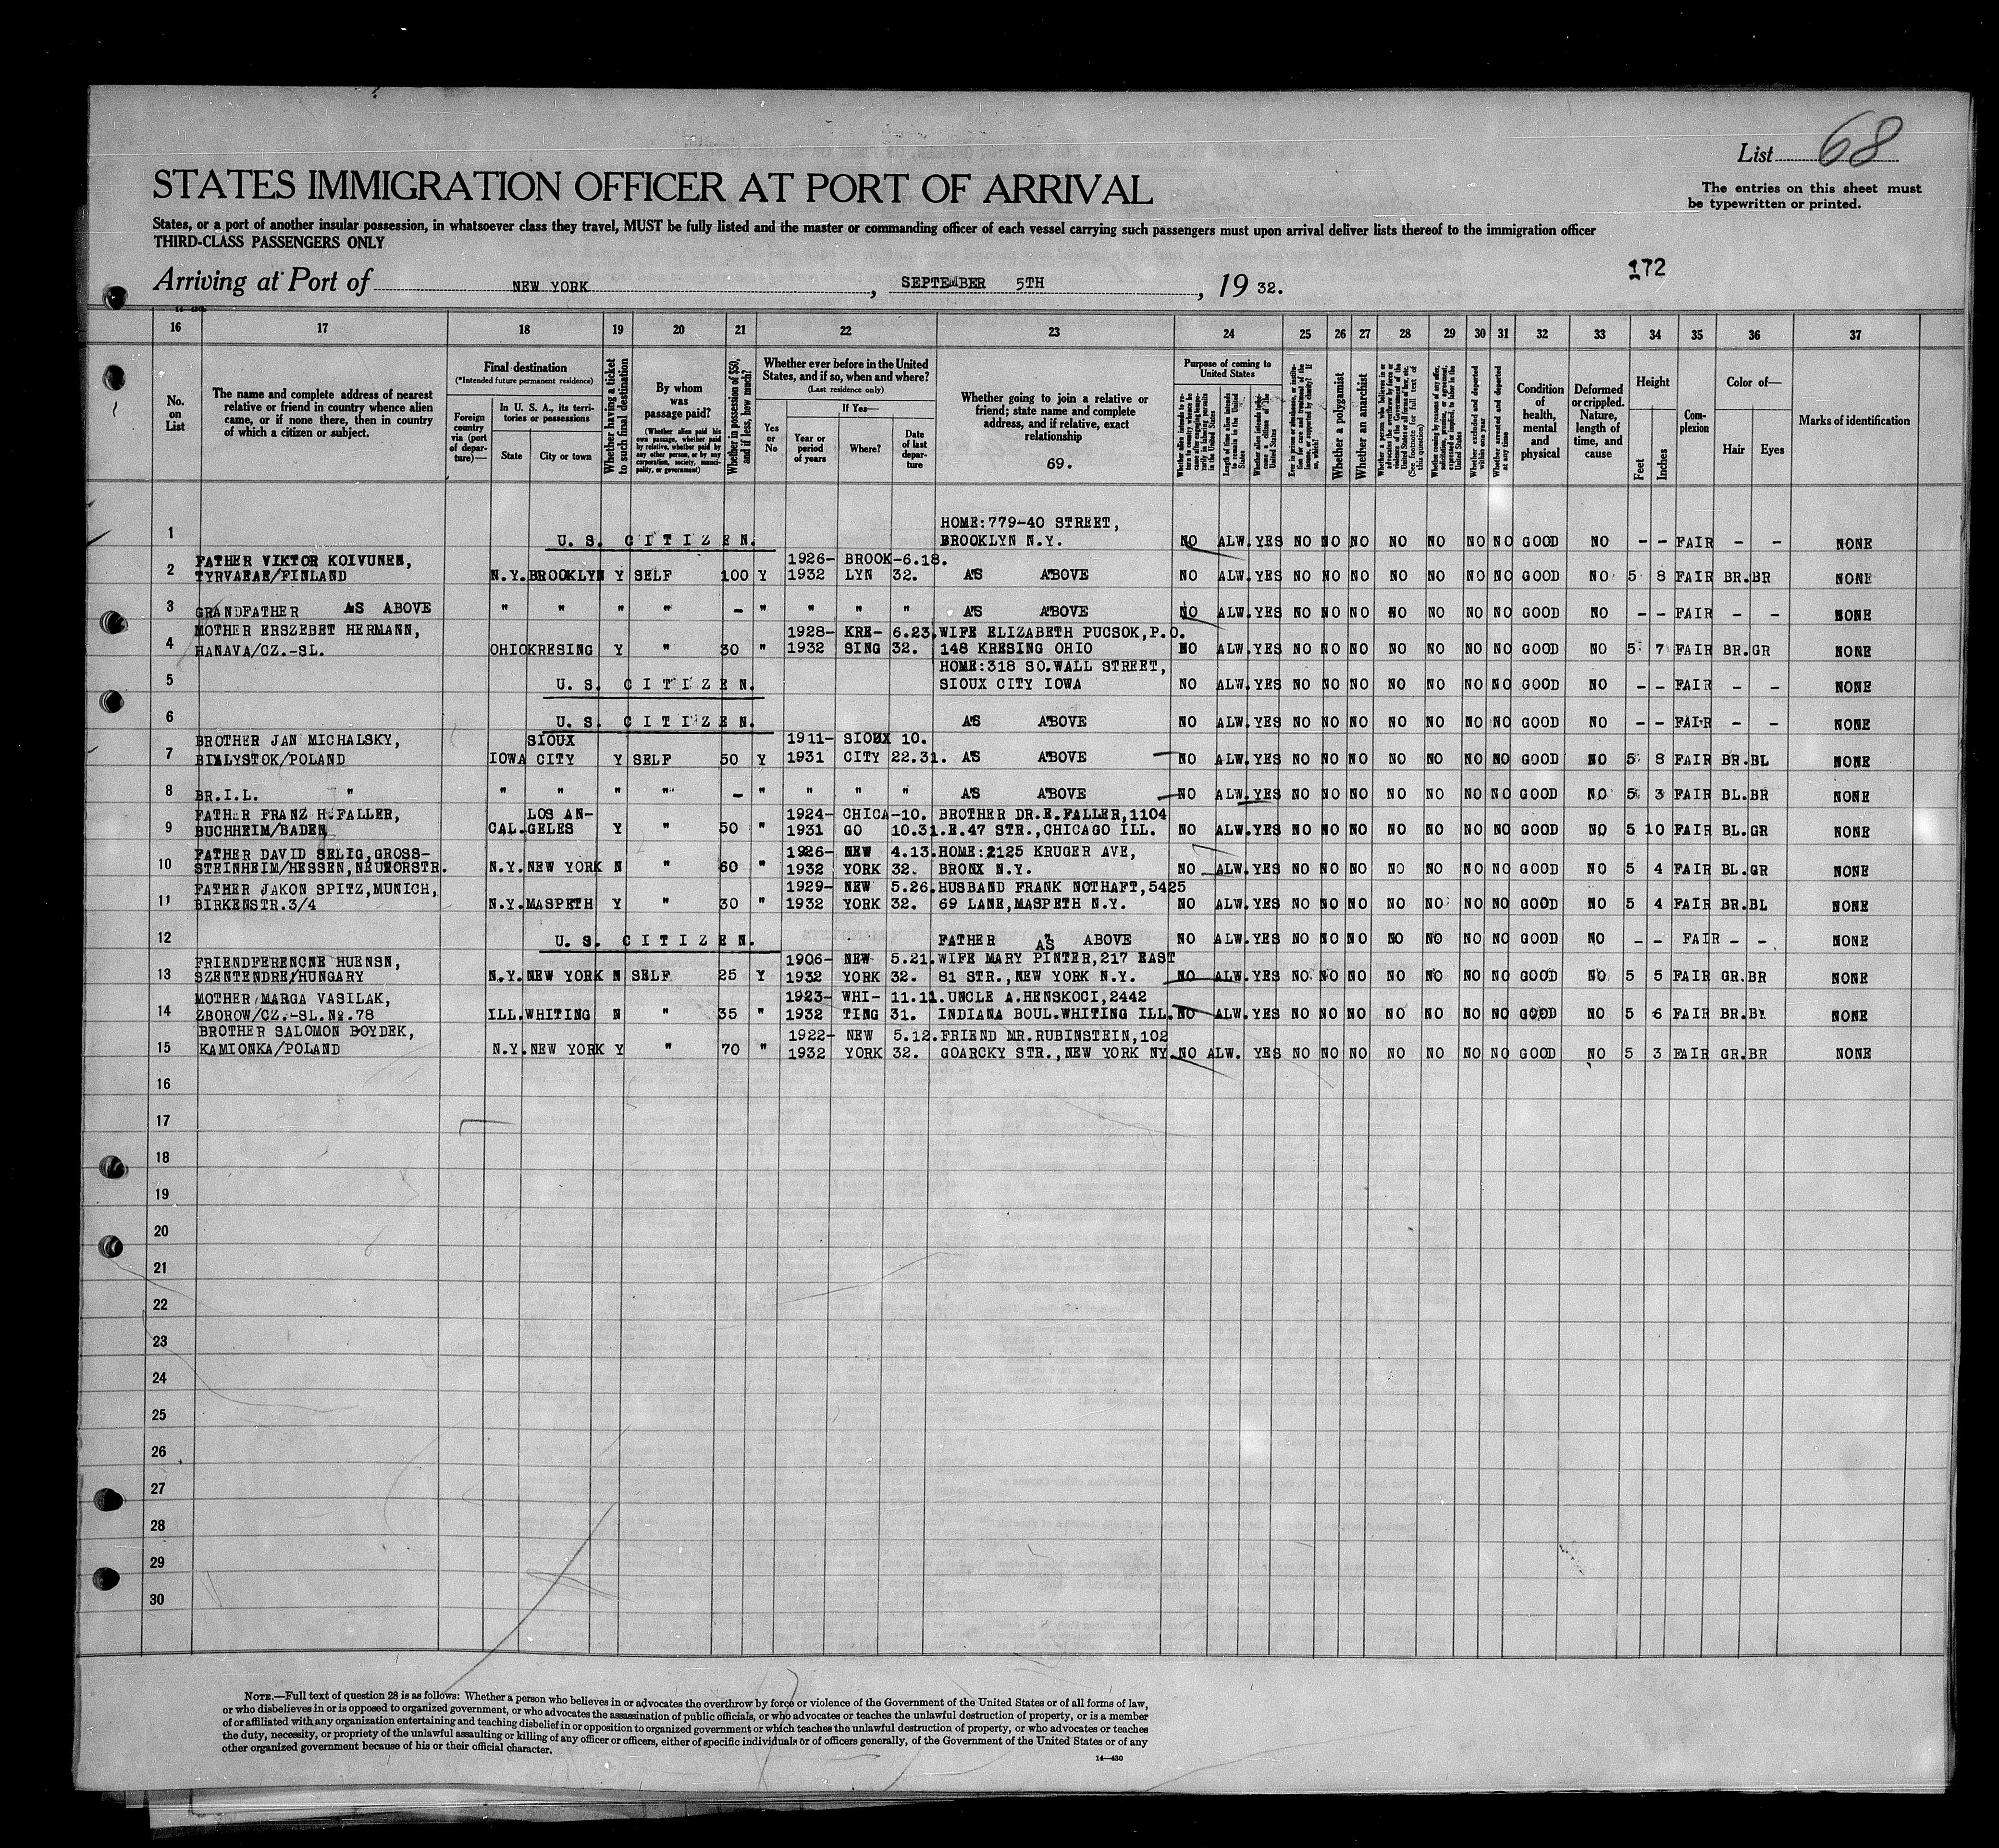 List 68
STATES IMMIGRATION OFFICER AT PORT OF ARRIVAL
The entries on this sheet must
be typewritten or printed.
States, or a port of another insular possession, in whatsoever class they travel, MUST be fully listed and the master or commanding officer of each vessel carrying such passengers must upon arrival deliver lists thereof to the immigration officer
THIRD-CLASS PASSENGERS ONLY
172
Arriving at Port of NEW YORK, SEPTEMBER 5TH, 19 32.
16 17 18 19 20 21 22 23 24 25 26 27 28 29 30 31 32 33 34 35 36 37
No. on List
The name and complete address of nearest
relative or friend in country whence alien
came, or if none there, then in country
of which a citizen or subject.
Final destination
(*Intended future permanent residence)
Foreign country via (port of departure)—
In U. S. A., its territories or possessions
State
City or town
Whether having a ticket to such final destination
By whom was passage paid?
(Whether alien paid his own passage, whether paid by relative, whether paid by any other person, or by any corporation, society, municipality, or government)
Whether in possession of $50, and if less, how much?
Whether ever before in the United
States, and if so, when and where?
(Last residence only)
Yes or No
If Yes—
Year or period of years
Where?
Date of last departure
Whether going to join a relative or
friend; state name and complete
address, and if relative, exact
relationship
69.
Purpose of coming to United States
Length of time alien intends to remain in the United States
Whether a polygamist
Whether an anarchist
(See footnote for full text of this question)
Whether excluded and deported within one year
Whether arrested and deported at any time
Condition of health, mental and physical
Deformed or crippled. Nature, length of time, and cause
Height
Feet
Inches
Complexion
Color of—
Hair
Eyes
Marks of identification
HOME:779-40 STREET,
1 U. S. CITIZEN. BROOKLYN N.Y. NO ALW. YES NO NO NO NO NO NO NO GOOD NO - - FAIR - - NONE
FATHER VIKTOR KOIVUNEN, 1926- BROOK-6.18.
2 TYRVAEAE/FINLAND N.Y. BROOKLYN Y SELF 100 Y 1932 LYN 32. AS ABOVE NO ALW. YES NO NO NO NO NO NO NO GOOD NO 5 8 FAIR BR. BR NONE
3 GRANDFATHER AS ABOVE " " " " - " " " " AS ABOVE NO ALW. YES NO NO NO NO NO NO NO GOOD NO - - FAIR - - NONE
MOTHER ERSZEBET HERMANN, 1928- KRE- 6.23. WIFE ELIZABETH PUCSOK, P.O.
4 HANAVA/CZ.-SL. OHIO KRESING Y " 30 " 1932 SING 32. 148 KRESING OHIO NO ALW. YES NO NO NO NO NO NO NO GOOD NO 5 7 FAIR BR. GR NONE
HOME:318 SO.WALL STREET,
5 U. S. CITIZEN. SIOUX CITY IOWA NO ALW. YES NO NO NO NO NO NO NO GOOD NO - - FAIR - - NONE
6 U. S. CITIZEN. AS ABOVE NO ALW. YES NO NO NO NO NO NO NO GOOD NO - - FAIR - - NONE
BROTHER JAN MICHALSKY, SIOUX 1911- SIOUX 10.
7 BIALYSTOK/POLAND IOWA CITY Y SELF 50 Y 1931 CITY 22.31. AS ABOVE NO ALW. YES NO NO NO NO NO NO NO GOOD NO 5 8 FAIR BR. BL NONE
8 BR.I.L. " " " " " - " " " " AS ABOVE NO ALW. YES NO NO NO NO NO NO NO GOOD NO 5 3 FAIR BL. BR NONE
FATHER FRANZ H.FALLER, LOS AN- 1924- CHICA-10. BROTHER DR.E.FALLER, 1104
9 BUCHHEIM/BADEN CAL. GELES Y " 50 " 1931 GO 10.31. E.47 STR., CHICAGO ILL. NO ALW. YES NO NO NO NO NO NO NO GOOD NO 5 10 FAIR BL. GR NONE
FATHER DAVID SELIG, GROSS- 1926- NEW 4.13. HOME:2125 KRUGER AVE,
10 STEINHEIM/HESSEN, NEUTORSTR. N.Y. NEW YORK N " 60 " 1932 YORK 32. BRONX N.Y. NO ALW. YES NO NO NO NO NO NO NO GOOD NO 5 4 FAIR BL. GR NONE
FATHER JAKON SPITZ, MUNICH, 1929- NEW 5.26. HUSBAND FRANK NOTHAFT, 5425
11 BIRKENSTR.3/4 N.Y. MASPETH Y " 30 " 1932 YORK 32. 69 LANE, MASPETH N.Y. NO ALW. YES NO NO NO NO NO NO NO GOOD NO 5 4 FAIR BR. BL NONE
12 U. S. CITIZEN. FATHER " AS ABOVE NO ALW. YES NO NO NO NO NO NO NO GOOD NO - - FAIR - - NONE
FRIENDFERENCNE HUENSN, 1906- NEW 5.21. WIFE MARY PINTER, 217 EAST
13 SZENTENDRE/HUNGARY N.Y. NEW YORK N SELF 25 Y 1932 YORK 32. 81 STR., NEW YORK N.Y. NO ALW. YES NO NO NO NO NO NO NO GOOD NO 5 5 FAIR GR. BR NONE
MOTHER MARGA VASILAK, 1923- WHI- 11.11. UNCLE A.HENSKOCI, 2442
14 ZBOROW/CZ.-SL.No.78 ILL. WHITING N " 35 " 1932 TING 31. INDIANA BOUL.WHITING ILL. NO ALW. YES NO NO NO NO NO NO NO GOOD NO 5 6 FAIR BR. NONE
BROTHER SALOMON BOYDEK, 1922- NEW 5.12. FRIEND MR.RUBINSTEIN, 102
15 KAMIONKA/POLAND N.Y. NEW YORK Y " 70 " 1932 YORK 32. GOARCKY STR., NEW YORK NY. NO ALW. YES NO NO NO NO NO NO NO GOOD NO 5 3 FAIR GR. BR NONE
16
17
18
19
20
21
22
23
24
25
26
27
28
29
30
NOTE.—Full text of question 28 is as follows: Whether a person who believes in or advocates the overthrow by force or violence of the Government of the United States or of all forms of law,
or who disbelieves in or is opposed to organized government, or who advocates the assassination of public officials, or who advocates or teaches the unlawful destruction of property, or is a member
of or affiliated with any organization entertaining and teaching disbelief in or opposition to organized government or which teaches the unlawful destruction of property, or who advocates or teaches
the duty, necessity, or propriety of the unlawful assaulting or killing of any officer or officers, either of specific individuals or of officers generally, of the Government of the United States or of any
other organized government because of his or their official character.
14—430